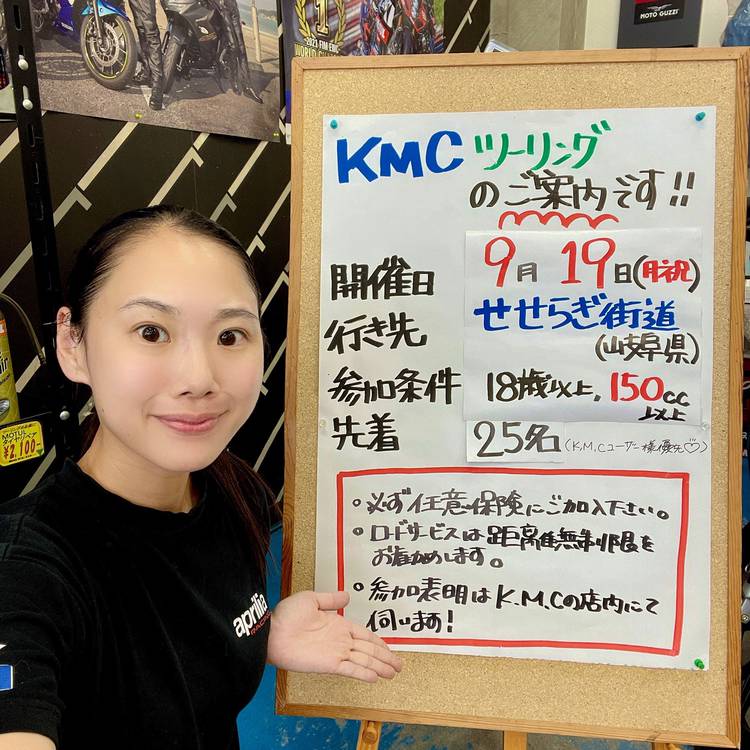 MOTO GUZZI
1
2021 FIM EWC
KMCツーリング
のご案内です!!
開催日 9月19日(月祝)
行き先 せせらぎ街道
(岐阜県)
参加条件 18歳以上,150cc
以上
先着 25名(K.M.Cユーザー様優先♡)
。必ず任意保険にご加入下さい。
。ロードサービスは距離無制限を
お薦めします。
。参加表明はK.M.Cの店内にて
伺います!
MOTUL
¥2,100-
aprilia
RACING